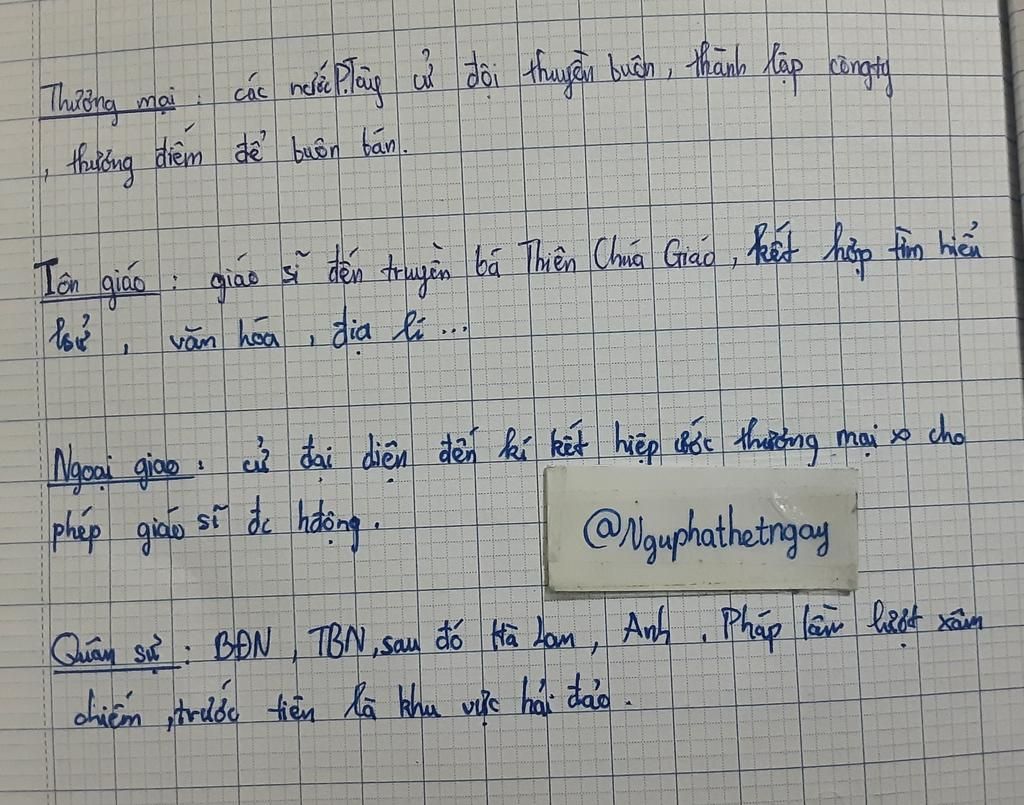 Thương mại : các nước P.Tây cử đội thuyền buôn, thành lập công ty
, thương điếm để buôn bán.
Tôn giáo : giáo sĩ đến truyền bá Thiên Chúa Giáo, kết hợp tìm hiểu
lsử, văn hóa, địa lí ...
Ngoại giao : cử đại diện đến kí kết hiệp ước thương mại cho
phép giáo sĩ đc hđộng.
@Nguphathetngay
Quân sự : BĐN, TBN, sau đó Hà Lan, Anh, Pháp lần lượt xâm
chiếm, trước tiên là khu vực hải đảo.